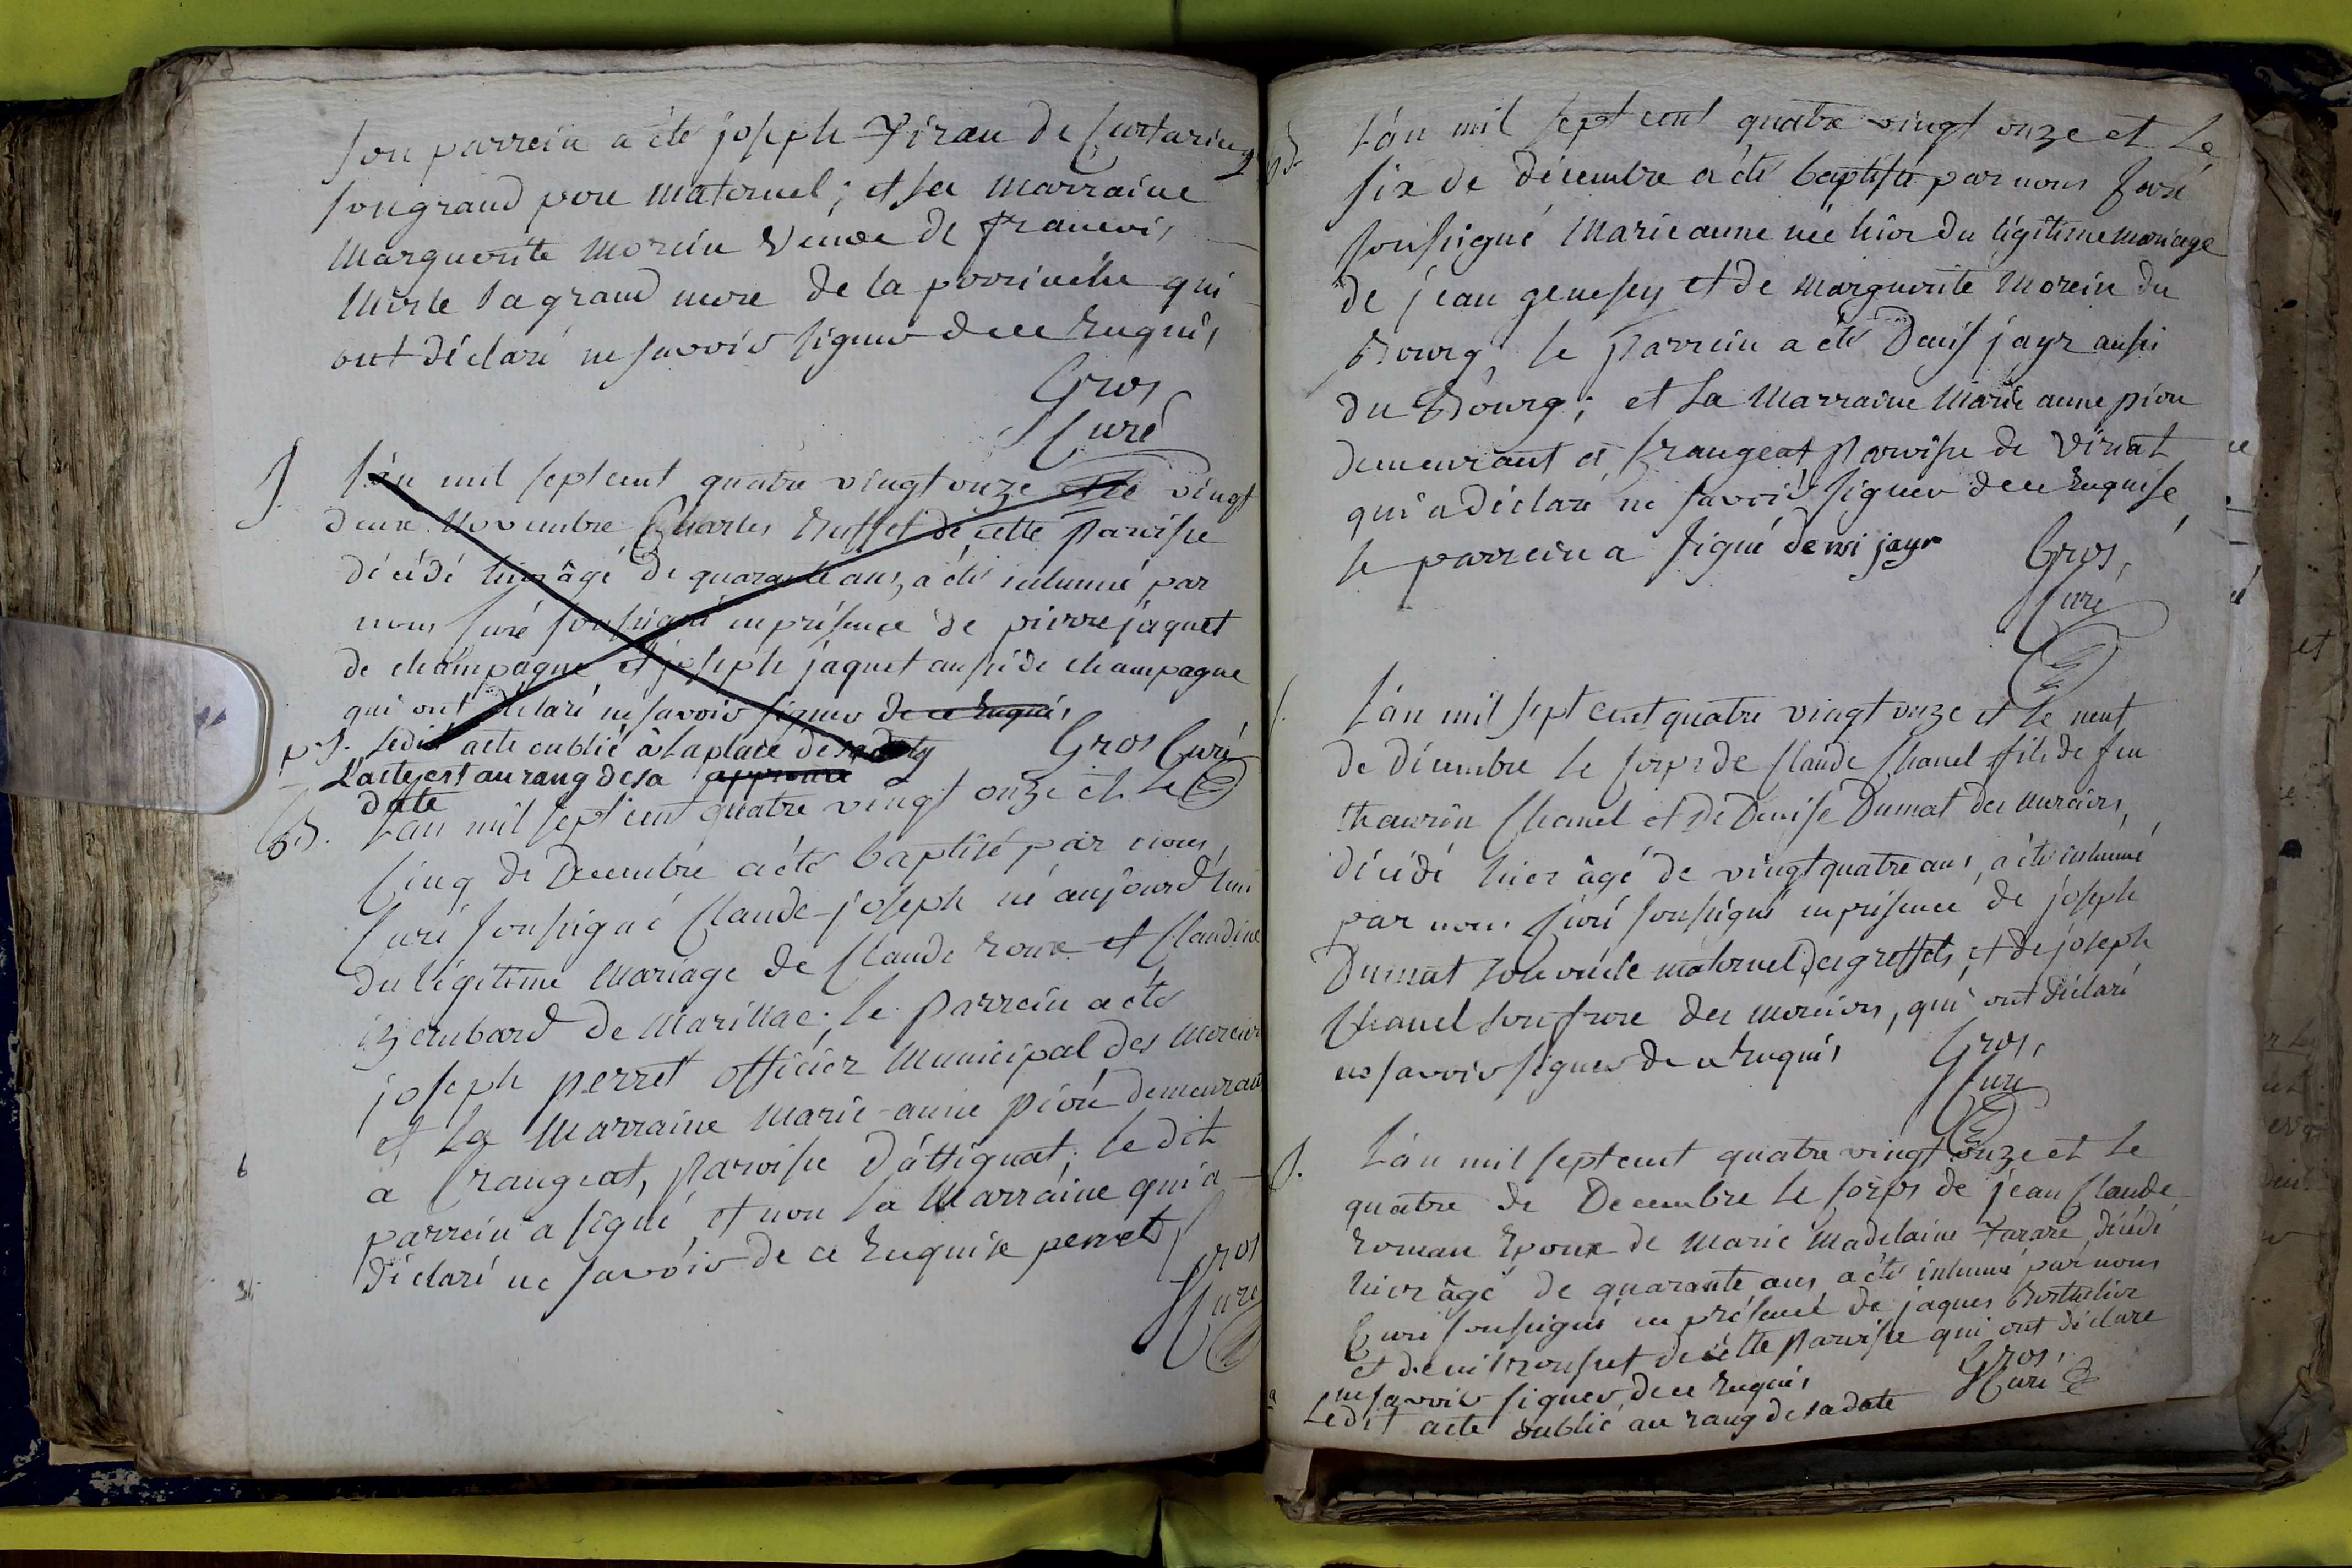 son parrein a été joseph Tiran de Curtaringe
son grand pere maternel; et sa marraine
marguerite morein veuve de francois
mirle sa grand mere de la
ont déclaré ne savoir signer de ce requis
Gros
Curé
S. L'an mil sept cent quatre vingt onze et le vingt
deux novembre Charles ruffet de cette paroisse
décédé hier âgé de quarante ans, a été inhumé par
nous Curé soussigné en présence de pierre jaquet
de champagne et joseph jaquet aussi de champagne
qui ont déclaré ne savoir signer de ce requis
ps. ledit acte oublié à la place de sa date Gros Curé
L'acte est au rang de sa approuvé
date
B. L'an mil sept cent quatre vingt onze et le
Cinq de Decembre a été baptisé par nous
Curé soussigné Claude-joseph né aujourd'hui
du légitime mariage de Claude roux et Claudine
izembard de marillac; le parrein a été
joseph perret officier municipal des merciers
et la marraine marie-anne pion demeurant
à Crangeat, paroisse d'attignat; le dit
parrein a signé, et non la marraine qui a
déclaré ne savoir de ce requise perret
Gros
Curé
B. L'an mil sept cent quatre vingt onze et le
six de décembre a été baptisée par nous Curé
soussigné marie anne née hier du légitime mariage
de jean genesey et de marguerite morein du
Bourg; le parrein a été Denis jayr aussi
du Bourg; et la marraine marie anne pion
demeurant à Crangeat paroisse de viriat
qui a déclaré ne savoir signer de ce requise
le parrein a signé deni jayr
Gros,
Curé
S. L'an mil sept cent quatre vingt onze et le neuf
de décembre le corps de Claude Chanel fils de feu
thaurin Chanel et de Denise Dumat des merciers,
décédé hier âgé de vingt quatre ans, a été inhumé
par nous Curé soussigné en présence de joseph
Dumat son oncle maternel des greffets, et de joseph
Chanel son frere des merciers, qui ont déclaré
ne savoir signer de ce requis Gros,
Curé
S. L'an mil sept cent quatre vingt onze et le
quatre de Decembre le corps de jean Claude
roman époux de marie madelaine Tarare, décédé
hier âgé de quarante ans a été inhumé par nous
Curé soussigné en présence de jaques
et denis de cette paroisse qui ont déclaré
ne savoir signer de ce requis Gros,
Curé
Ledit acte oublié au rang de sa date